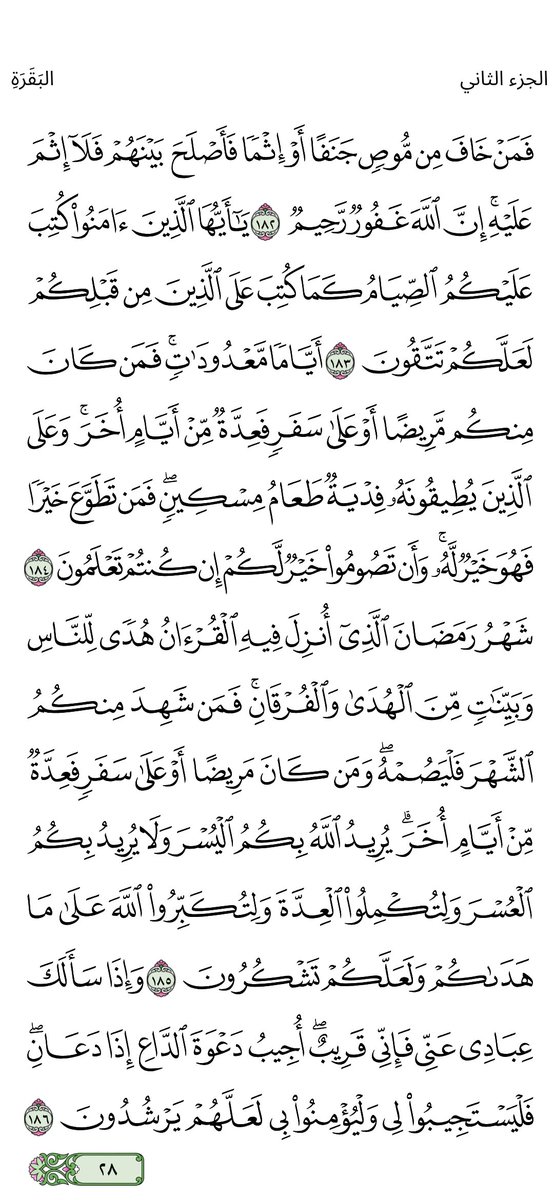 الجزء الثاني
البَقَرَةِ
فَمَنْ خَافَ مِن مُّوصٍ جَنَفًا أَوْ إِثْمًا فَأَصْلَحَ بَيْنَهُمْ فَلَآ إِثْمَ
عَلَيْهِۚ إِنَّ ٱللَّهَ غَفُورٌ رَّحِيمٌ ١٨٢ يَٰٓأَيُّهَا ٱلَّذِينَ ءَامَنُوا۟ كُتِبَ
عَلَيْكُمُ ٱلصِّيَامُ كَمَا كُتِبَ عَلَى ٱلَّذِينَ مِن قَبْلِكُمْ
لَعَلَّكُمْ تَتَّقُونَ ١٨٣ أَيَّامًا مَّعْدُودَٰتٍۚ فَمَن كَانَ
مِنكُم مَّرِيضًا أَوْ عَلَىٰ سَفَرٍ فَعِدَّةٌ مِّنْ أَيَّامٍ أُخَرَۚ وَعَلَى
ٱلَّذِينَ يُطِيقُونَهُۥ فِدْيَةٌ طَعَامُ مِسْكِينٍۖ فَمَن تَطَوَّعَ خَيْرًا
فَهُوَ خَيْرٌ لَّهُۥۚ وَأَن تَصُومُوا۟ خَيْرٌ لَّكُمْ إِن كُنتُمْ تَعْلَمُونَ ١٨٤
شَهْرُ رَمَضَانَ ٱلَّذِىٓ أُنزِلَ فِيهِ ٱلْقُرْءَانُ هُدًى لِّلنَّاسِ
وَبَيِّنَٰتٍ مِّنَ ٱلْهُدَىٰ وَٱلْفُرْقَانِۚ فَمَن شَهِدَ مِنكُمُ
ٱلشَّهْرَ فَلْيَصُمْهُۖ وَمَن كَانَ مَرِيضًا أَوْ عَلَىٰ سَفَرٍ فَعِدَّةٌ
مِّنْ أَيَّامٍ أُخَرَۗ يُرِيدُ ٱللَّهُ بِكُمُ ٱلْيُسْرَ وَلَا يُرِيدُ بِكُمُ
ٱلْعُسْرَ وَلِتُكْمِلُوا۟ ٱلْعِدَّةَ وَلِتُكَبِّرُوا۟ ٱللَّهَ عَلَىٰ مَا
هَدَىٰكُمْ وَلَعَلَّكُمْ تَشْكُرُونَ ١٨٥ وَإِذَا سَأَلَكَ
عِبَادِى عَنِّى فَإِنِّى قَرِيبٌۖ أُجِيبُ دَعْوَةَ ٱلدَّاعِ إِذَا دَعَانِۖ
فَلْيَسْتَجِيبُوا۟ لِى وَلْيُؤْمِنُوا۟ بِى لَعَلَّهُمْ يَرْشُدُونَ ١٨٦
٢٨